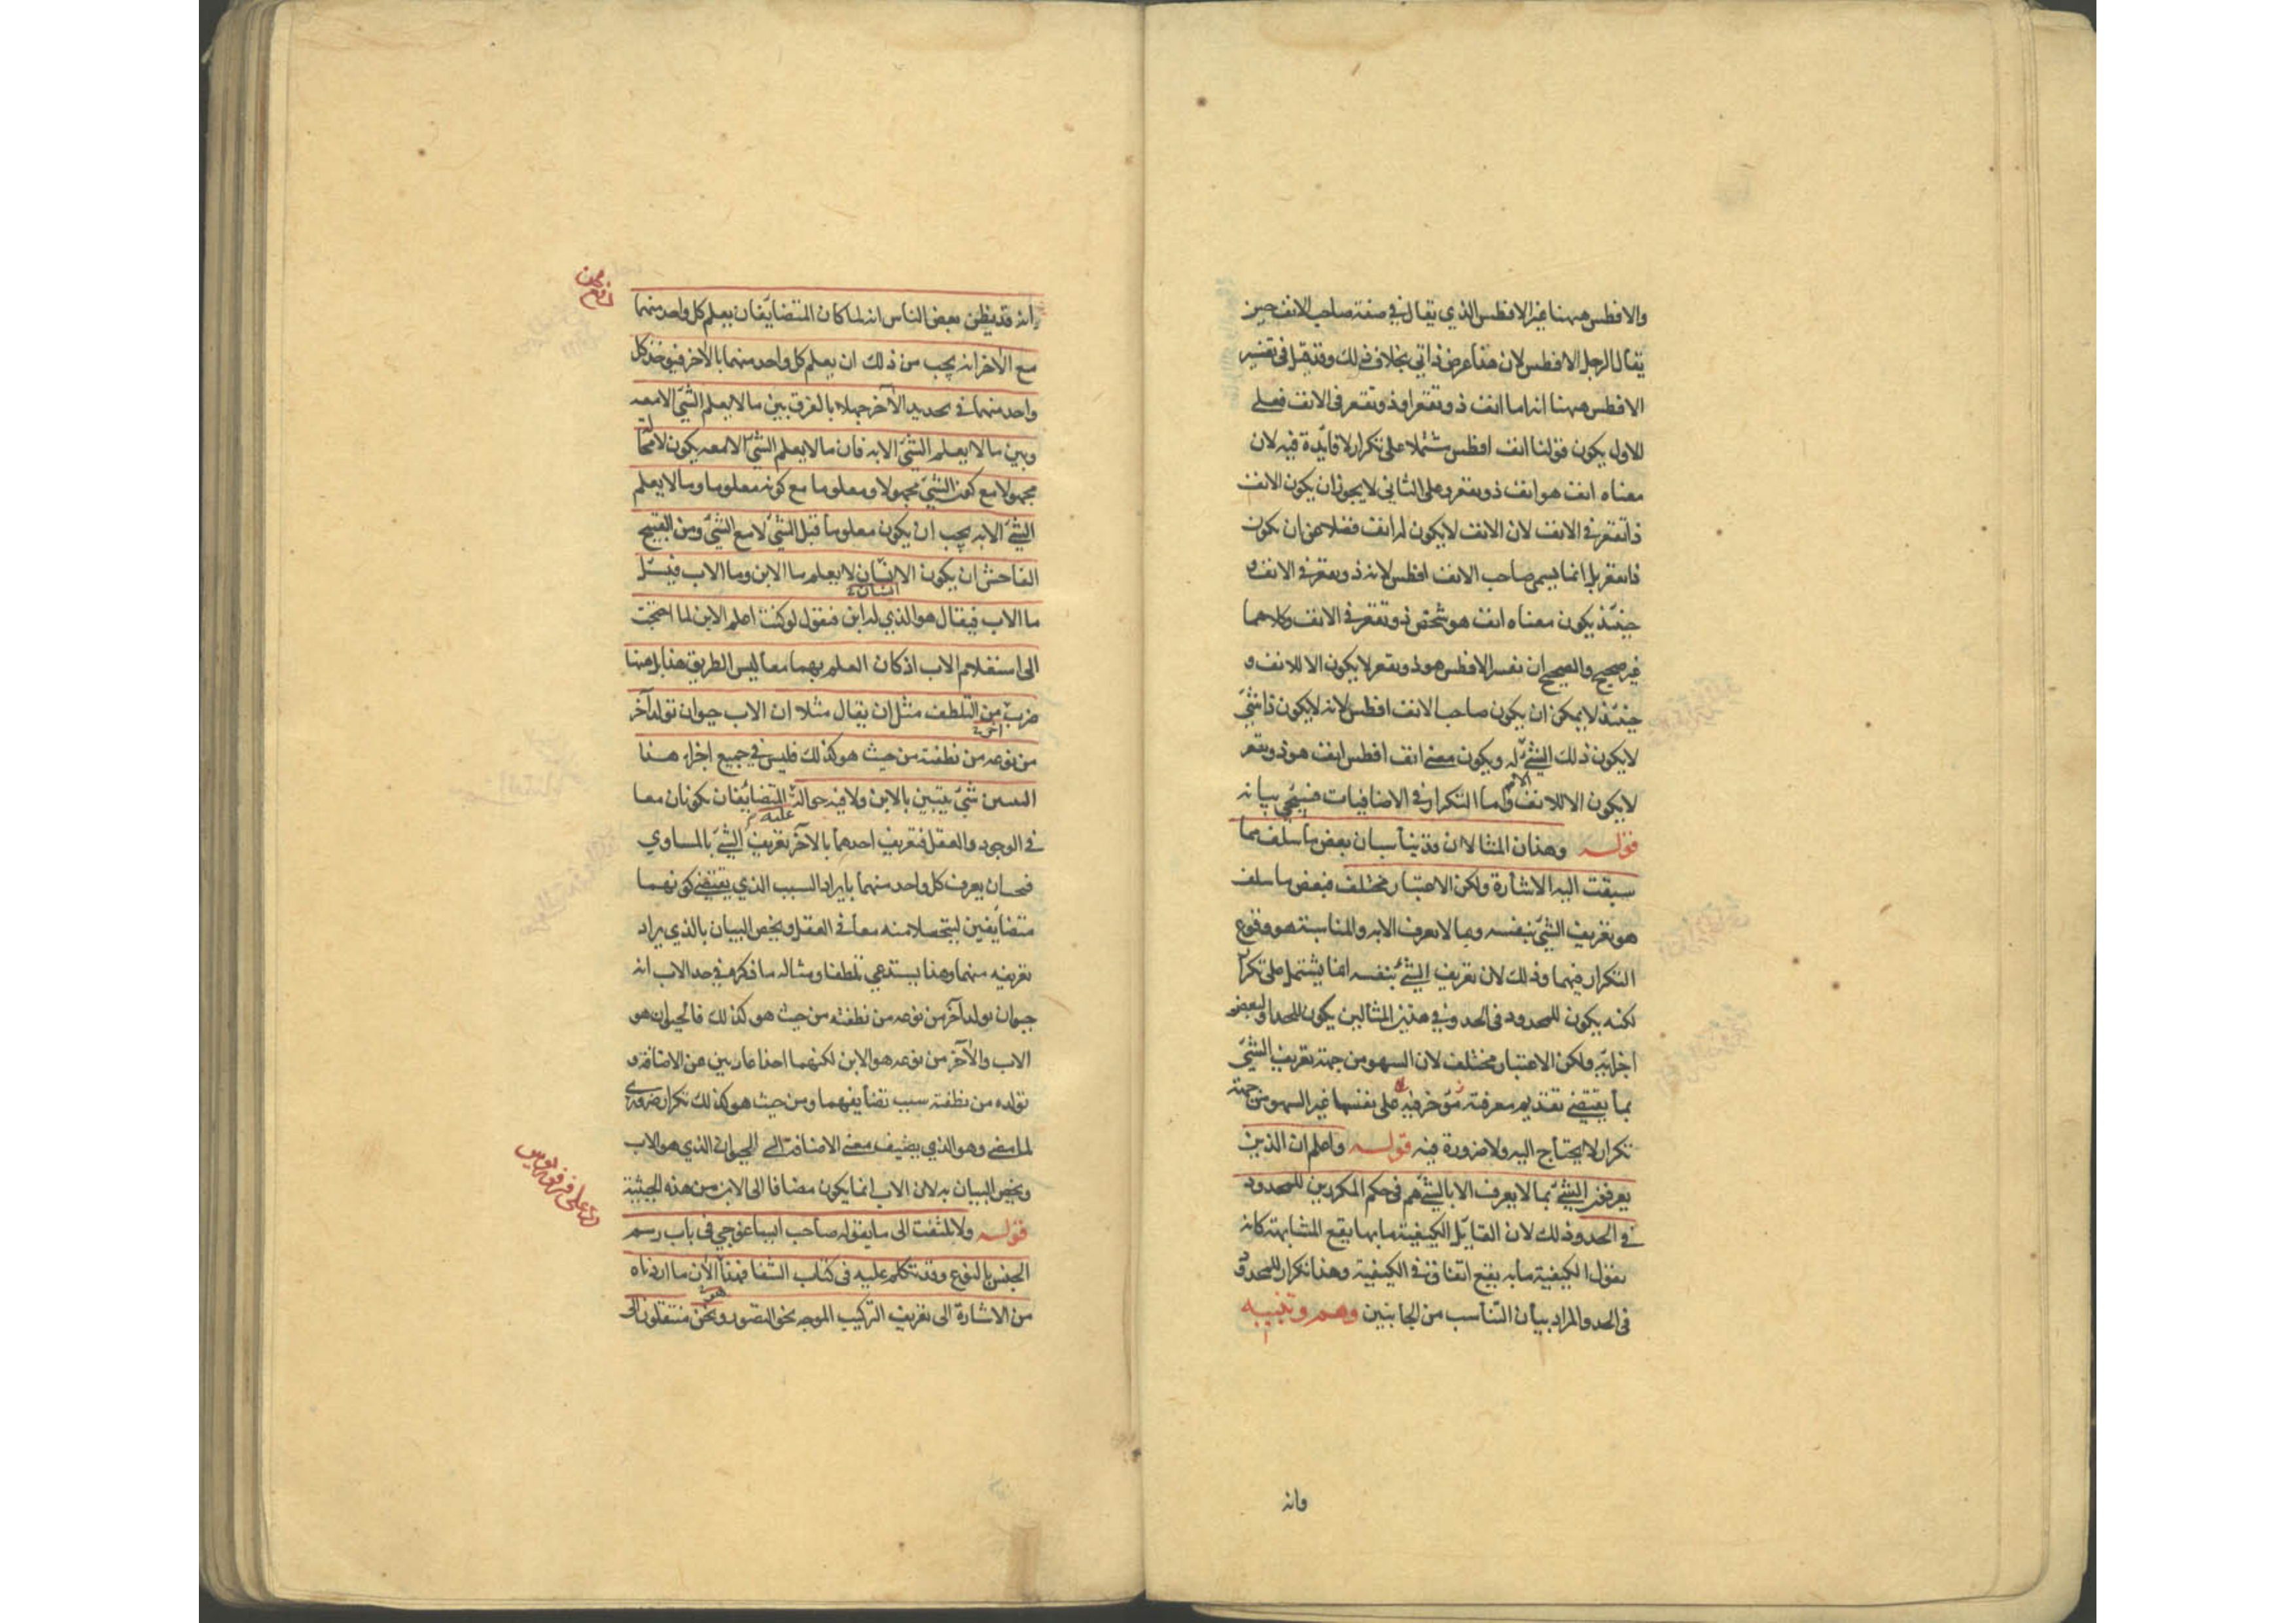 والافطس ههنا غير الافطس الذي يقال في صفة صاحب الانف حين
يقال الرجل الافطس لان هذا عرض ذاتي بخلاف ذلك وقد قيل في تفسير
الافطس ههنا انه اما انف ذو تقعر او ذو تقعر في الانف فعلى
الاول يكون قولنا انف افطس مشتملا على تكرار لا فائدة فيه لان
معناه انف هو انف ذو تقعر وعلى الثاني لا يجوز ان يكون الانف
ذا تقعر في الانف لان الانف لا يكون له انف فضلا عن ان يكون
ذا تقعر بل انما يسمى صاحب الانف افطس لانه ذو تقعر في الانف و
حينئذ يكون معناه انف هو شخص ذو تقعر في الانف وكلاهما
غير صحيح والصحيح ان نفسر الافطس هو ذو تقعر لا يكون الا للانف و
حينئذ لا يمكن ان يكون صاحب الانف افطس لانه لا يكون ذا شئ
لا يكون ذلك الشئ له ويكون معنى انف افطس انف هو ذو تقعر
لا يكون الا للانف واما التكرار في الاضافيات فسيجئ بيانه
قوله وهذان المثالان قد يناسبان بعض ما سلف مما
سبقت اليه الاشارة ولكن الاعتبار مختلف فبعض ما سلف
هو تعريف الشئ بنفسه وبما لا يعرف الا به والمناسبة هو وقوع
التكرار فيهما وذلك لان تعريف الشئ بنفسه انما يشتمل على تكرار
لكنه يكون للمحدود في الحد وفي هذين المثالين يكون للحد او لبعض
اجزائه ولكن الاعتبار مختلف لان السهو من جهة تعريف الشئ
بما يقتضي تقديم معرفته على نفسها غير السهو من جهة
تكرار لا يحتاج اليه ولا ضرورة فيه قوله واعلم ان الذين
يعرفون الشئ بما لا يعرف الا بالشئ هم في حكم المكررين للمحدود
في الحد وذلك لان القائل الكيفية ما بها يقع المشابهة كانه
يقول الكيفية ما به يقع اتفاق في الكيفية وهذا تكرار للمحدود
في الحد والمراد بيان التناسب من الجانبين وهم وتنبيه
وانه
وانه قد يظن بعض الناس انه لما كان المتضايفان يعلم كل واحد منهما
مع الآخر انه يجب من ذلك ان يعلم كل واحد منهما بالآخر فيؤخذ كل
واحد منهما في تحديد الآخر جهلا بالفرق بين ما لا يعلم الشئ الا معه
وبين ما لا يعلم الشئ الا به فان ما لا يعلم الشئ الا معه يكون لا محالة
مجهولا مع كون الشئ مجهولا ومعلوما مع كونه معلوما وما لا يعلم
الشئ الا به يجب ان يكون معلوما قبل الشئ لا مع الشئ ومن القبيح
الفاحش ان يكون الانسان لا يعلم ما الابن وما الاب فيسئل
ما الاب فيقال هو الذي له ابن فيقول لو كنت اعلم الابن لما احتجت
الى استعلام الاب اذ كان العلم بهما معا ليس الطريق هذا بل ههنا
ضرب من التلطف مثل ان يقال مثلا ان الاب حيوان تولد آخر
من نوعه من نطفته من حيث هو كذلك فليس في جميع اجزاء هذا
التبيين شئ يتبين بالابن ولا فيه حوالة عليه المتضايفان يكونان معا
في الوجود والعقل فتعريف احدهما بالآخر تعريف الشئ بالمساوي
فيجب ان يعرف كل واحد منهما بايراد السبب الذي يقتضي كونهما
متضايفين ليتحصلا منه معا في العقل ويخص البيان بالذي يراد
تعريفه منهما وهذا يستدعي تلطفا ومثاله ما ذكره في حد الاب انه
حيوان تولد آخر من نوعه من نطفته من حيث هو كذلك فالحيوان هو
الاب والآخر من نوعه هو الابن لكنهما اخذا عاريين عن الاضافة و
تولده من نطفته سبب تضايفهما ومن حيث هو كذلك تكرار ضروري
لما مضى وهو الذي يضيف معنى الاضافة الى الحيوان الذي هو الاب
ويخص البيان به لان الاب انما يكون مضافا الى الابن من هذه الحيثية
قوله ولا تلتفت الى ما يقوله صاحب ايساغوجي في باب رسم
الجنس بالنوع وقد تكلم عليه في كتاب الشفا فهذا الآن ما اردناه
من الاشارة الى تعريف التركيب الموجه نحو التصور ونحن منتقلون الى